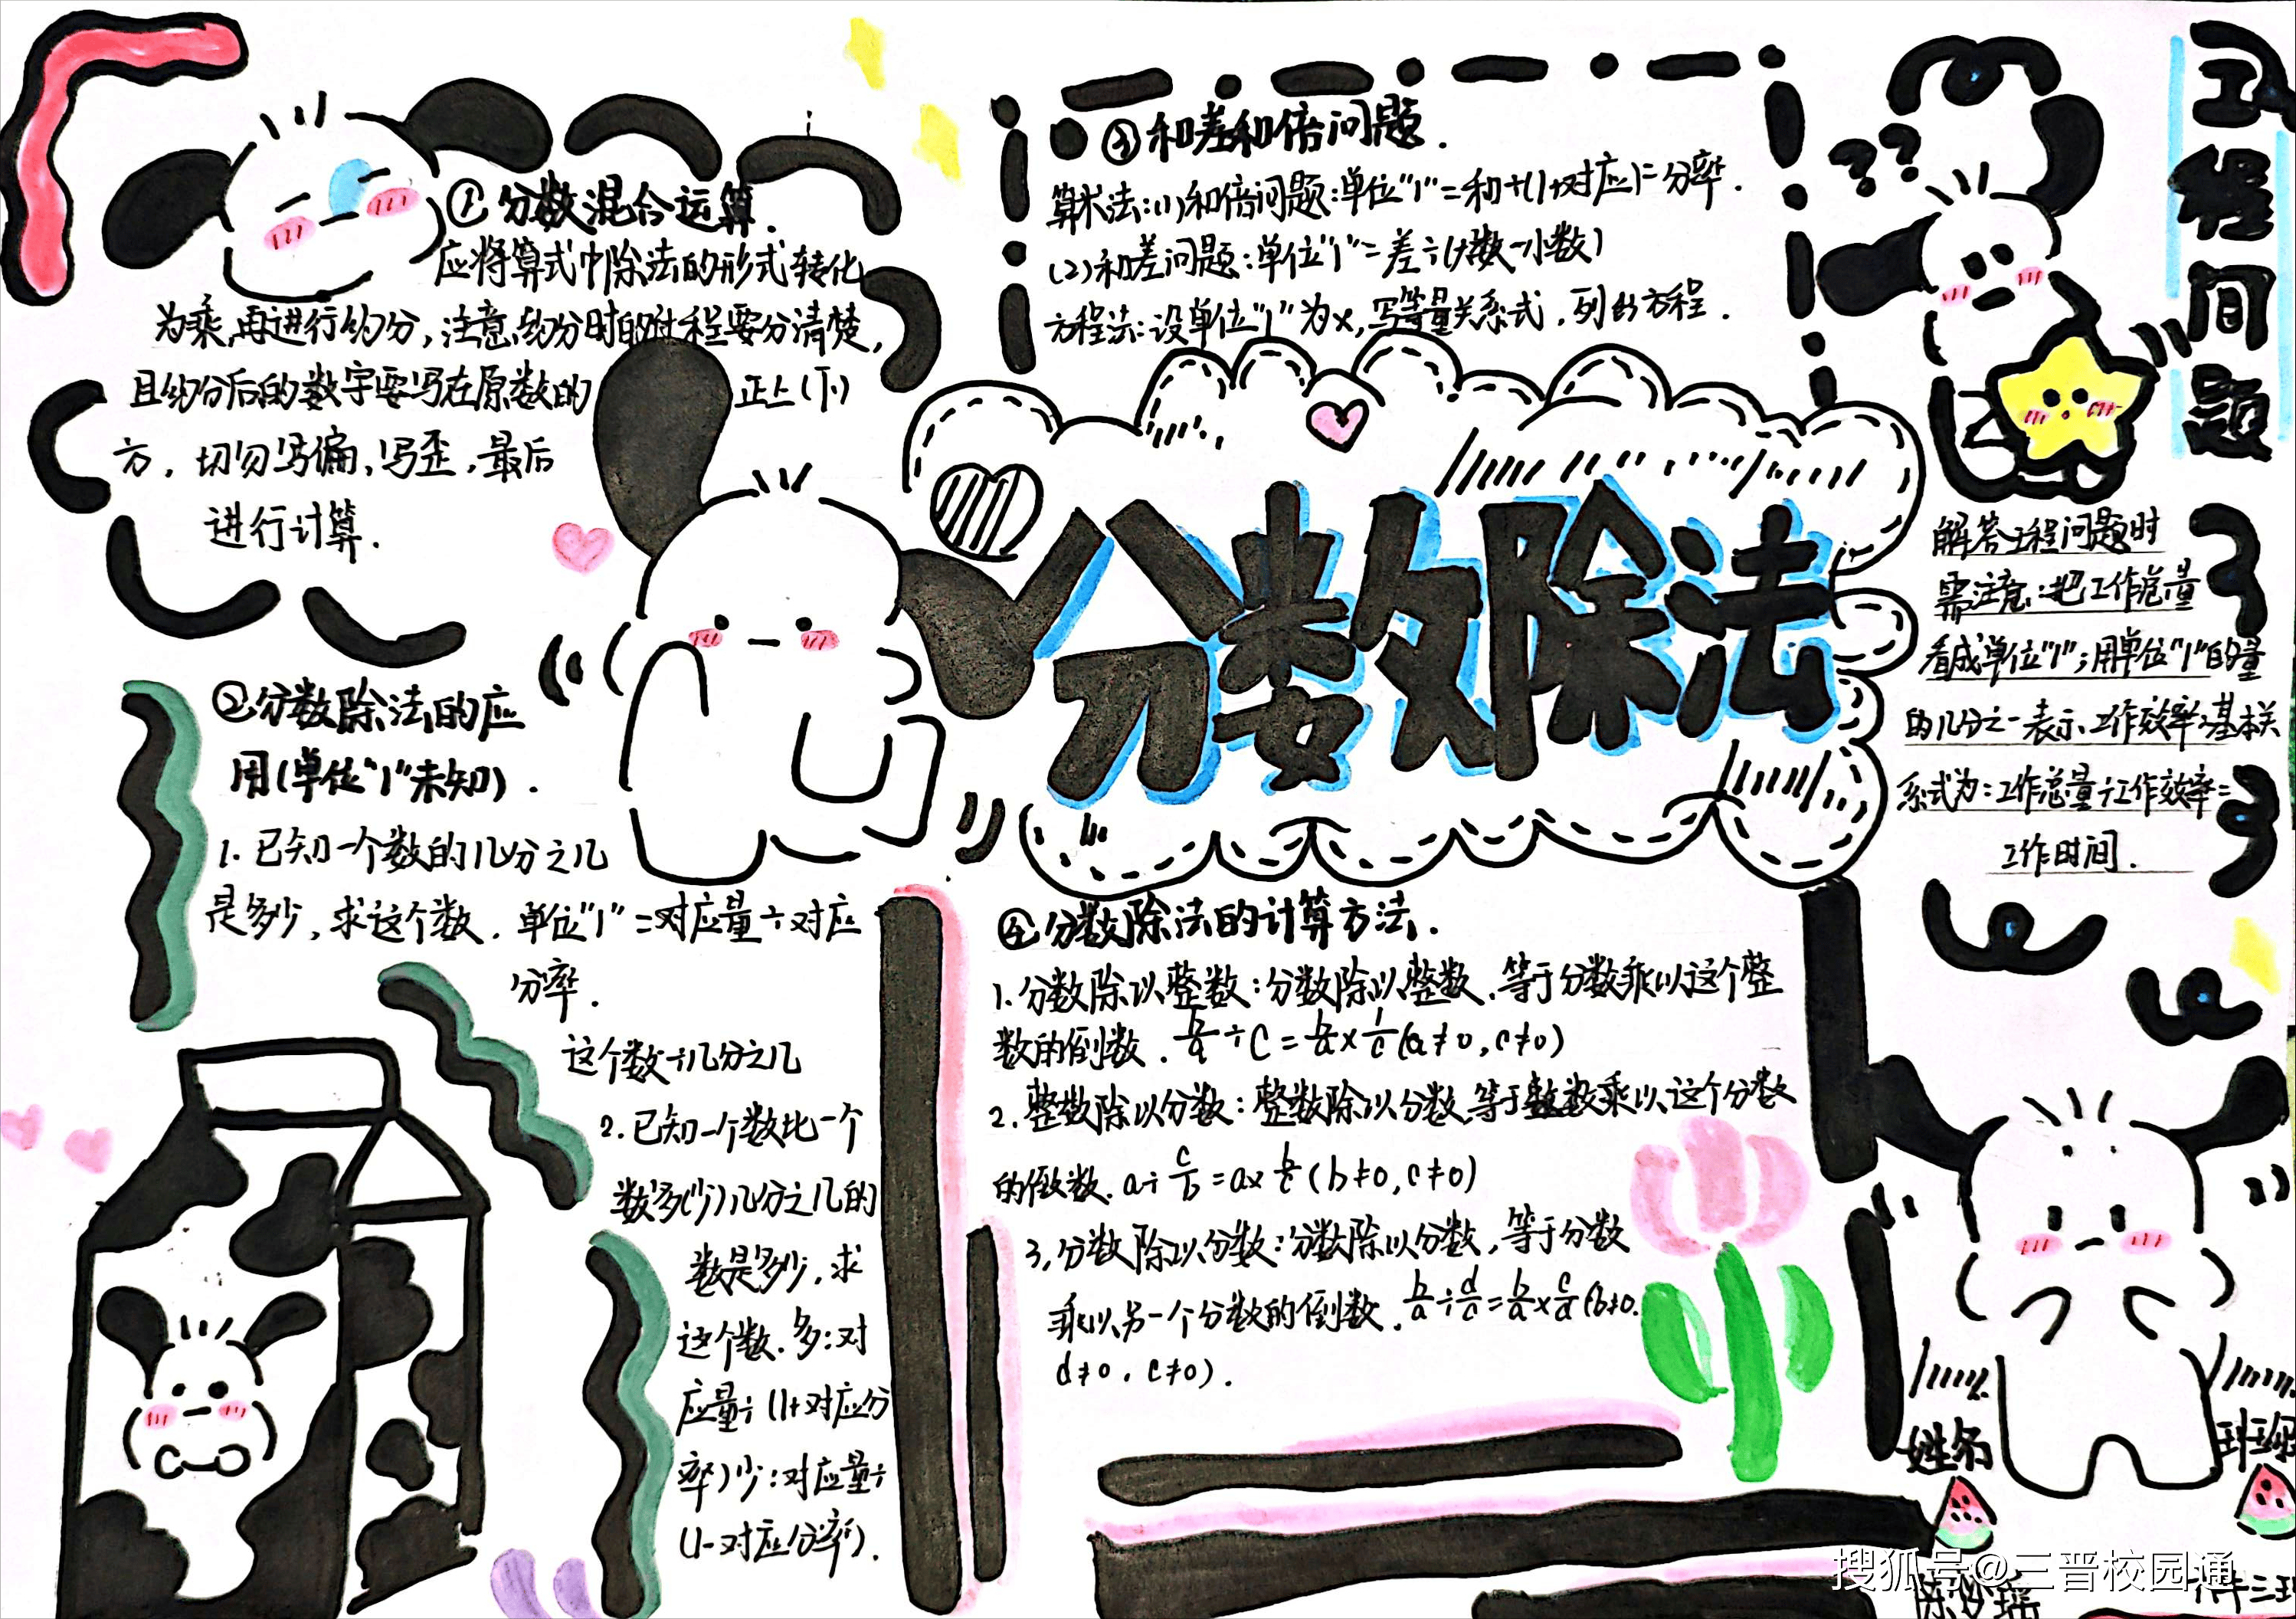 ①分数混合运算.
应将算式中除法的形式转化
为乘,再进行约分,注意约分时的过程要分清楚,
且约分后的数字要写在原数的正上(下)
方,切勿写偏,写歪,最后
进行计算.
②分数除法的应
用(单位"1"未知).
1.已知一个数的几分之几
是多少,求这个数.单位"1"=对应量÷对应
分率.
这个数÷几分之几
2.已知一个数比一个
数多(少)几分之几的
数是多少,求
这个数.多:对
应量÷(1+对应分
率)少:对应量÷
(1-对应分率).
③和差和倍问题.
算术法:(1)和倍问题:单位"1"=和÷(1+对应)=分率.
(2)和差问题:单位"1"=差÷(大数-小数)
方程法:设单位"1"为x,写等量关系式,列出方程.
分数除法
④分数除法的计算方法.
1.分数除以整数:分数除以整数,等于分数乘以这个整
数的倒数.b/a÷c=b/a×1/c(a≠0,c≠0)
2.整数除以分数:整数除以分数,等于整数乘以这个分数
的倒数.a÷c/b=a×b/c(b≠0,c≠0)
3,分数除以分数:分数除以分数,等于分数
乘以另一个分数的倒数.b/a÷d/c=b/a×c/d(b≠0.
d≠0,c≠0).
工程问题
??
解答工程问题时
需注意:把工作总量
看成单位"1";用单位"1"的量
的几分之一表示工作效率,基本关
系式为:工作总量÷工作效率=
工作时间.
姓名
班级
搜狐号@三晋校园通